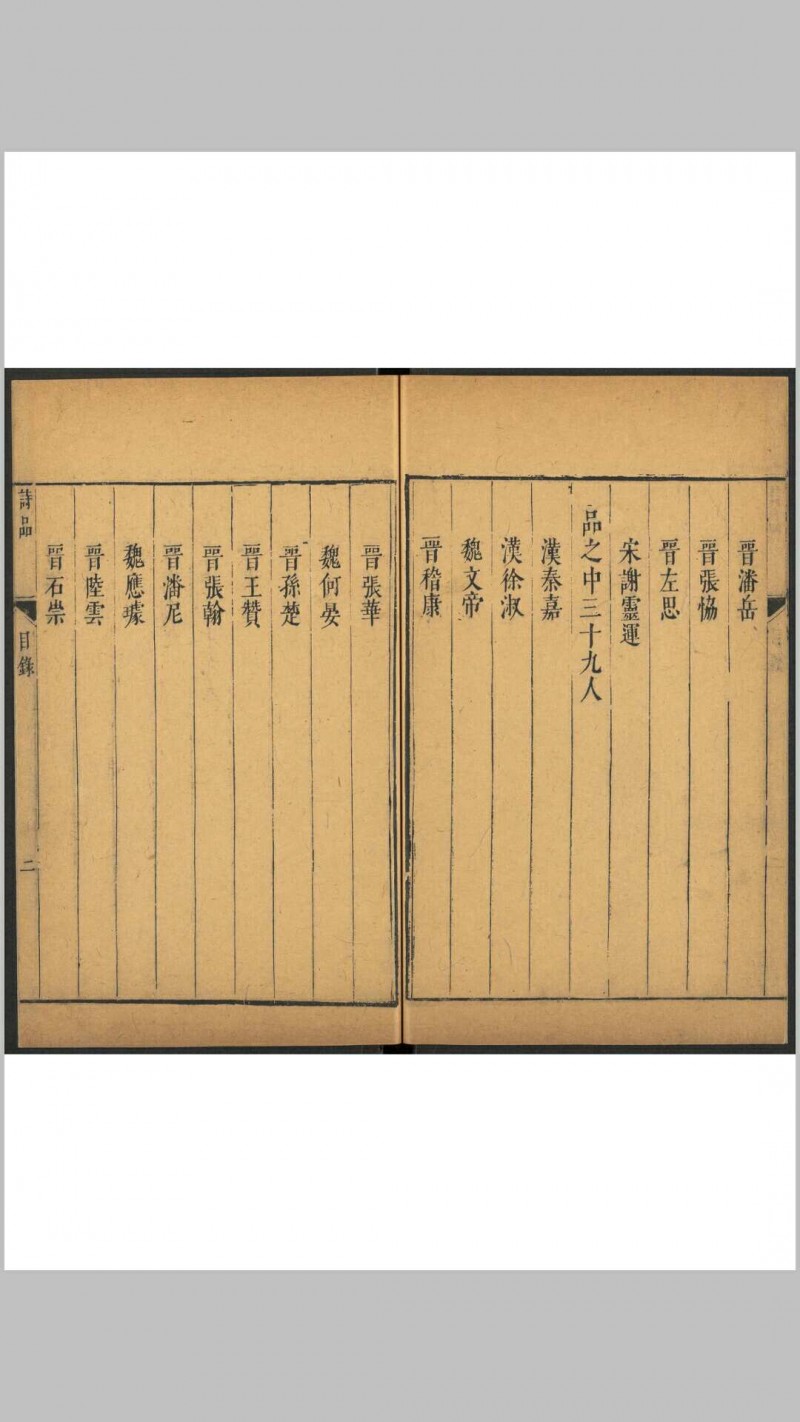 晉潘岳
晉張恊
晉左思
宋謝靈運
品之中三十九人
漢秦嘉
漢徐淑
魏文帝
晉嵇康
晉張華
魏何晏
晉孫楚
晉王贊
晉張翰
晉潘尼
魏應璩
晉陸雲
晉石崇
詩品
目錄
二